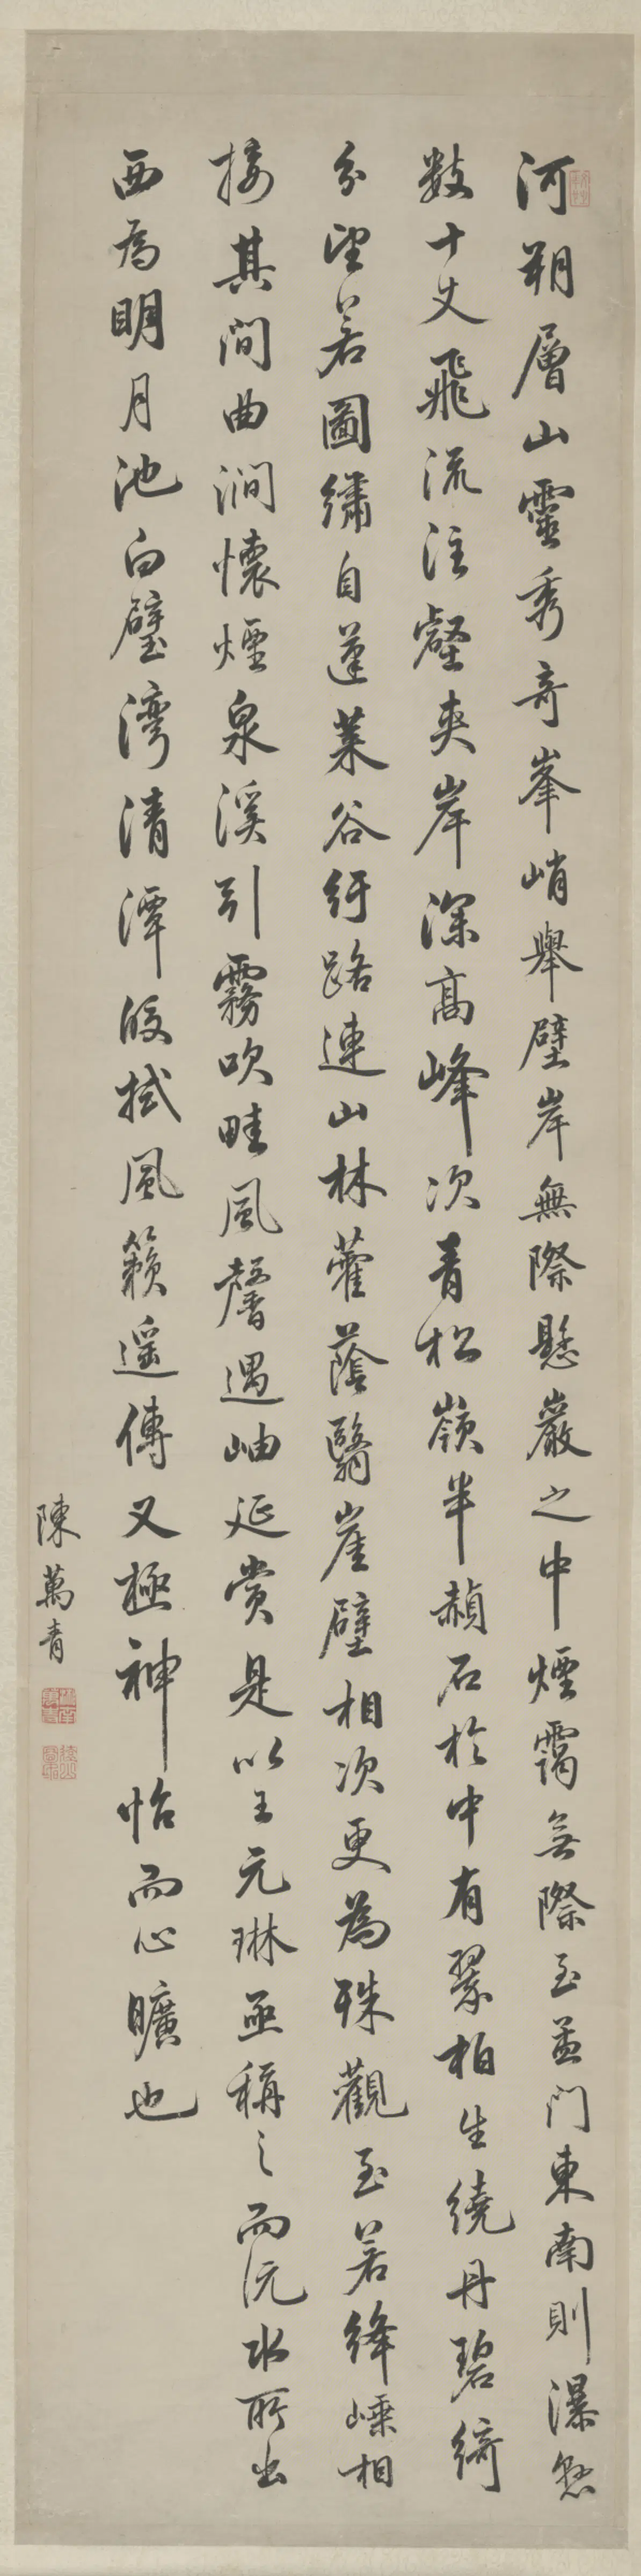 河朔層山靈秀奇峯峭舉壁岸無際懸巖之中煙靄無際至蓋門東南則瀑懸
數十丈飛流注壑夾岸深高峰次青松嶺半赬石於中有翠柏生繞丹碧綺
分望若圖繡自蓬萊谷紆路連山林藿蔭翳崖壁相次更為殊觀至若絳嶫相
接其間曲澗懷煙泉溪引霧吹畦風馨遇岫延賞是以王元琳亟稱之而沅水所出
西為明月池白璧灣清潭皎拭風籟遥傳又極神怡而心曠也
陳萬青